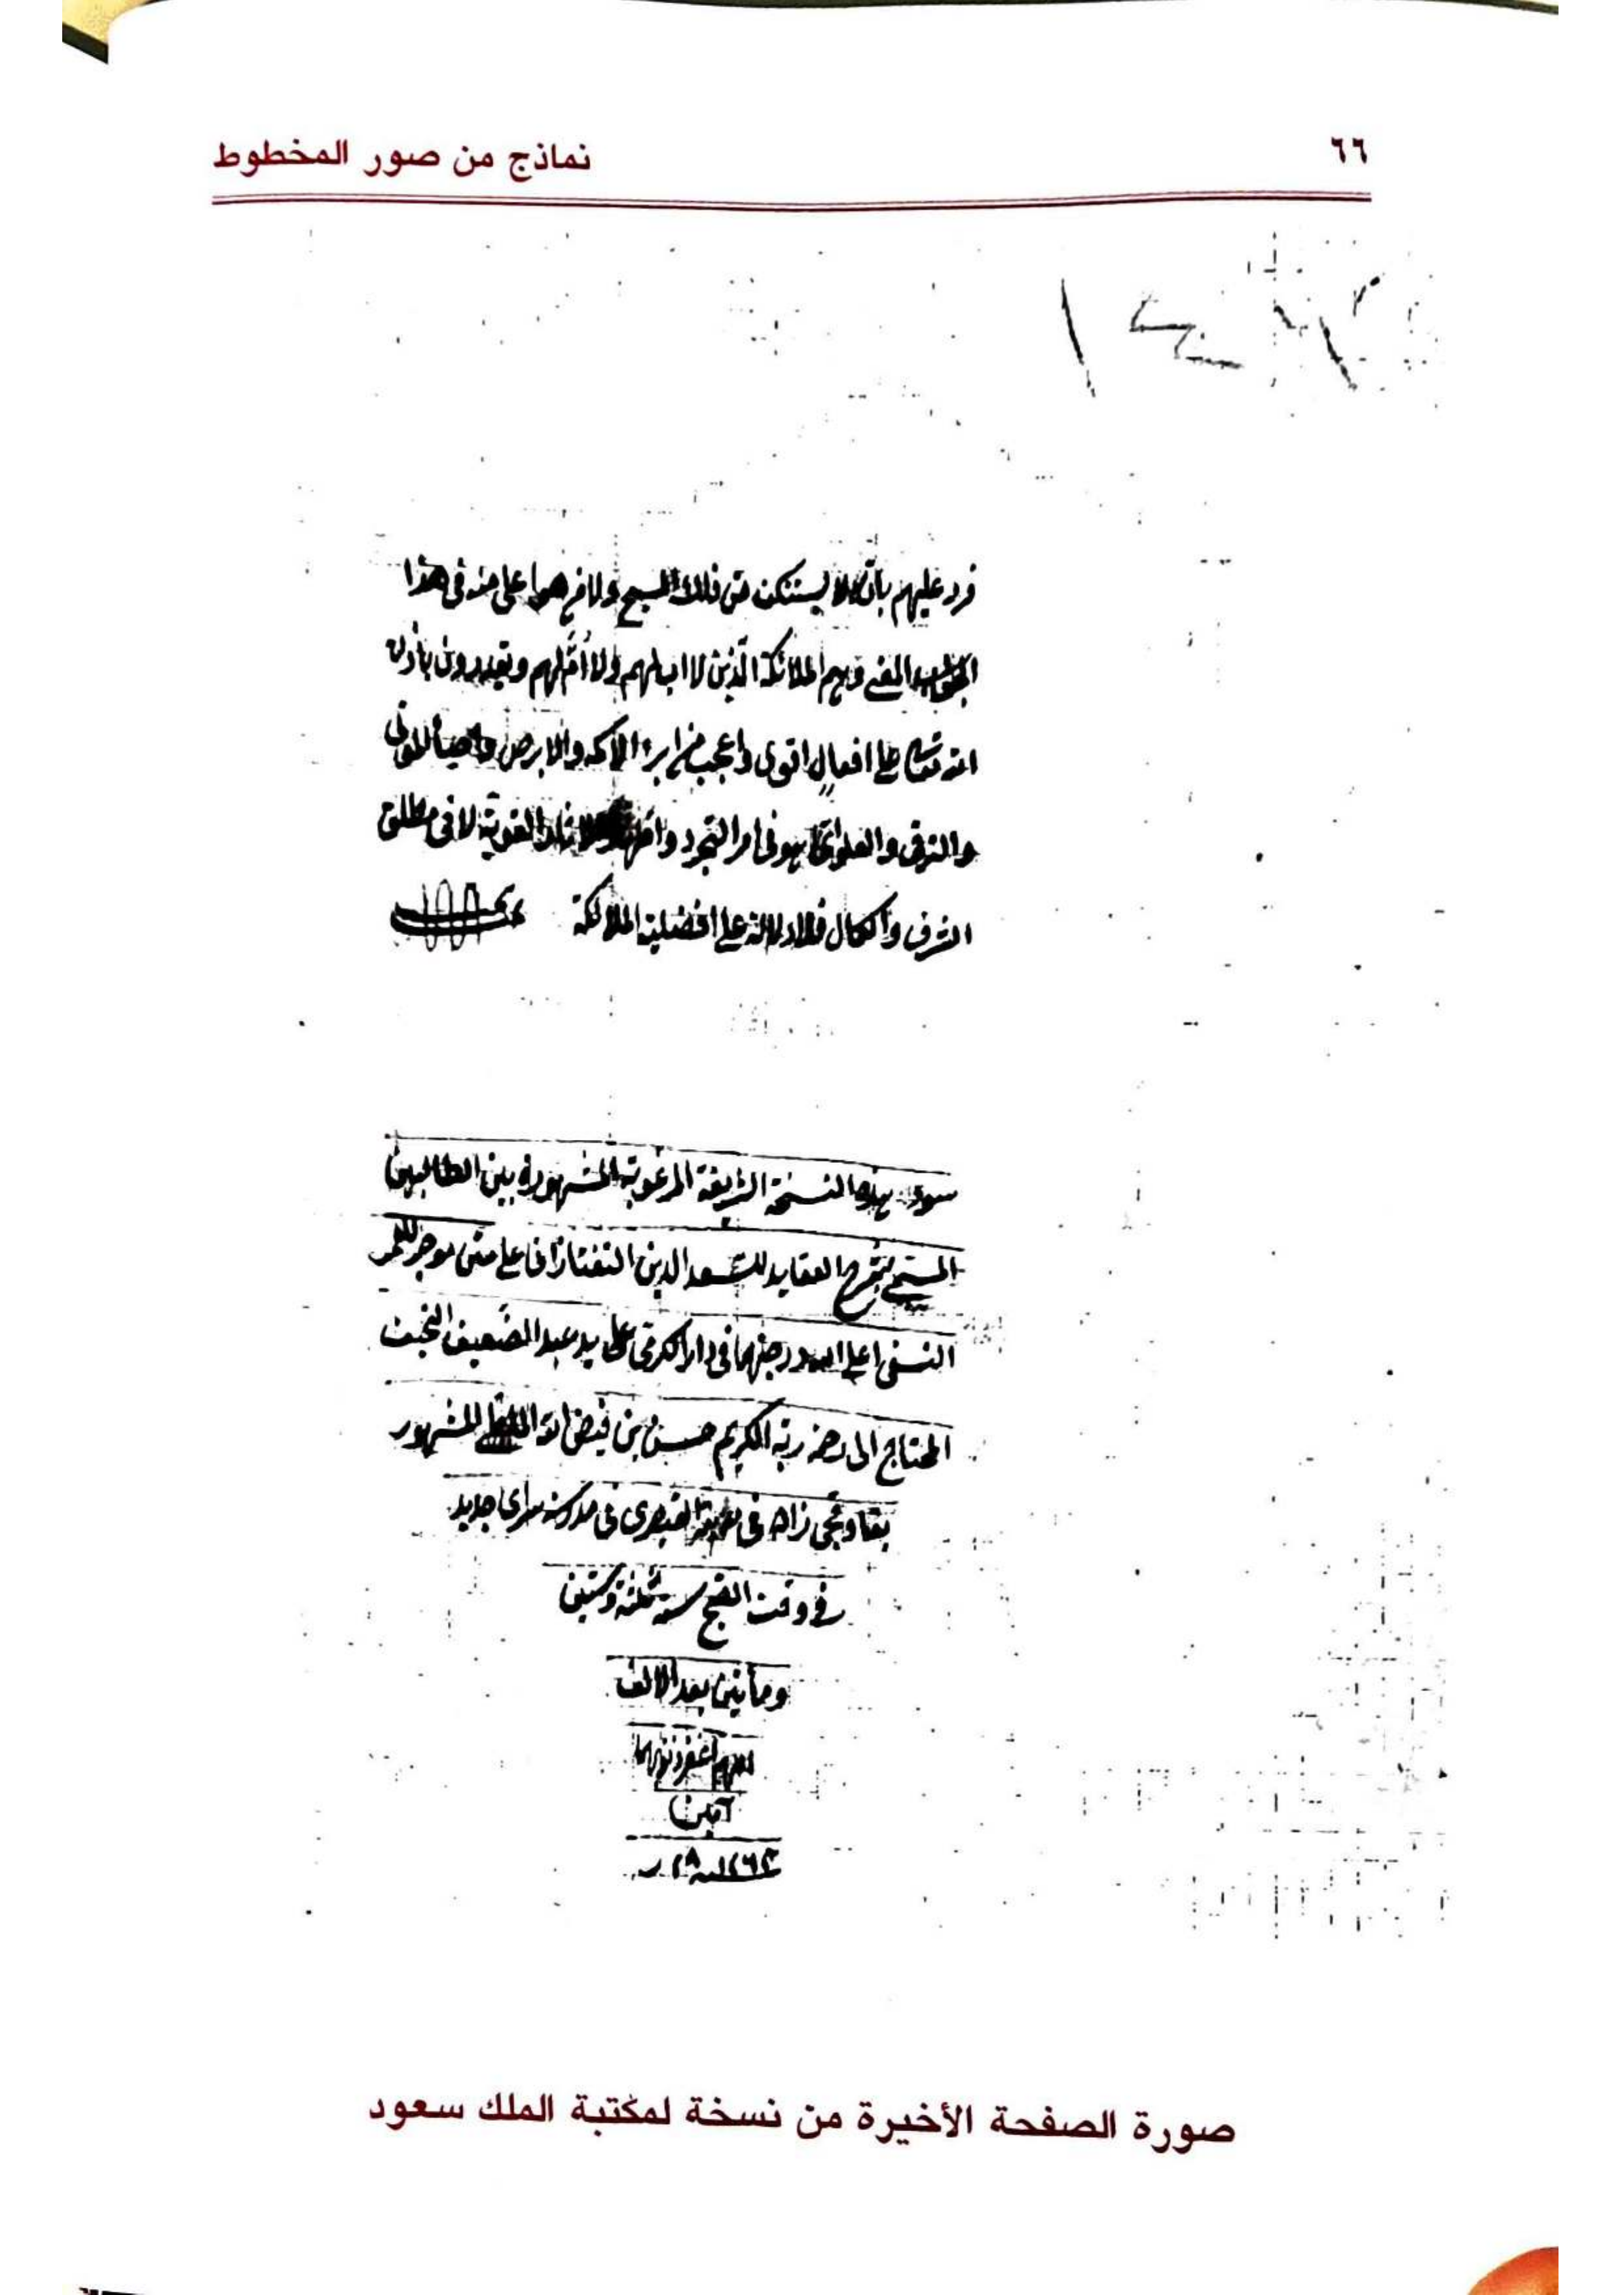 ٦٦
نماذج من صور المخطوط
فرد عليهم بأنه لا يستنكف من ذلك المسيح ولا من هو اعلى منه فى هذا
المعنى وهم الملائكة الذين لا اب لهم ولا ام لهم ويقدرون باذن
الله تعالى على افعال اقوى واعجب من ابراء الاكمه والابرص واحياء الموتى
والترقى والعلو انما هو فى امر التجرد واظهار الاثار القوية لا فى مطلق
الشرف والكمال فلا دلالة على افضلية الملائكة
هذه النسخة الشريفة المرغوبة المشهورة بين الطالبين
المسمى بشرح العقايد للسعد الدين التفتازانى على متن عمر
النسفى اعلى الله درجتهما فى دار على يد عبد الضعيف النحيف
المحتاج الى ربه الكريم حسين بن فيض الله المشهور
زاده فى القيصرى فى جديد
فى وقت سنة ثلثة وستين
ومأتين بعد الالف
اللهم اغفر ذنوبهما
آمين
صورة الصفحة الأخيرة من نسخة لمكتبة الملك سعود